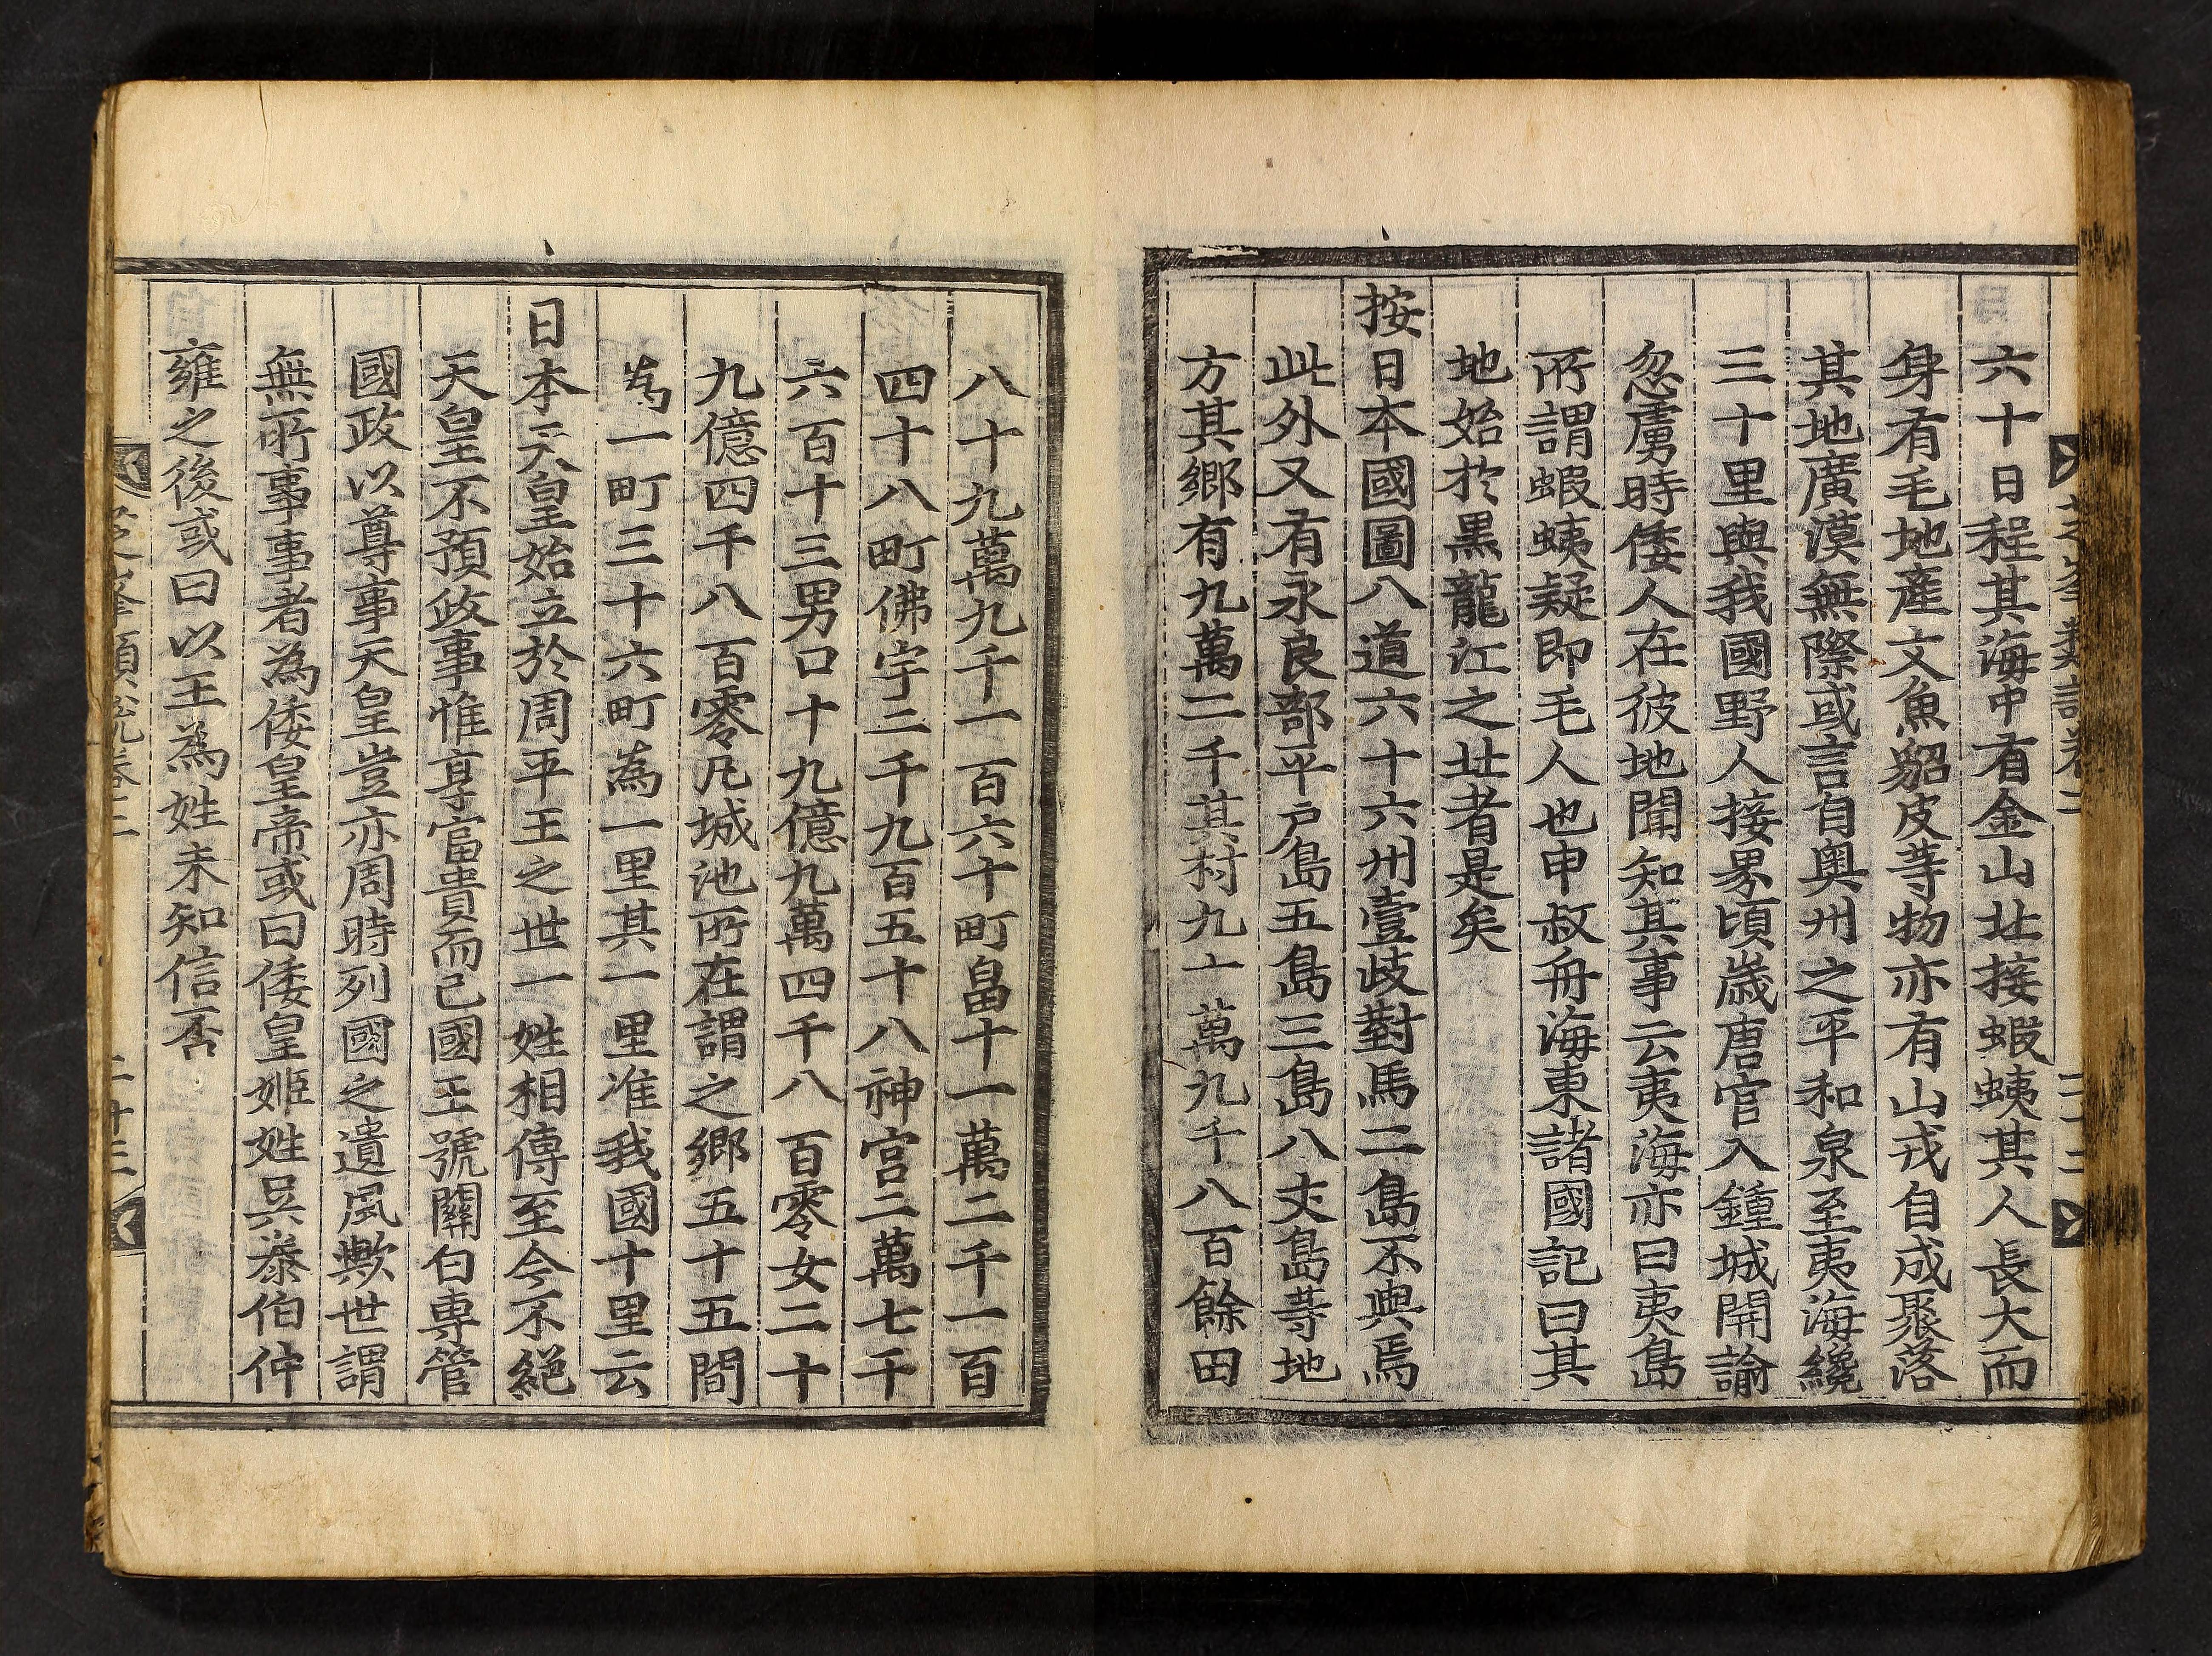 六十日程其海中有金山北接蝦蛦其人長大而
身有毛地産文魚貂皮等物亦有山戎自成聚落
其地廣漠無際或言自奥州之平和泉至夷海纔
三十里與我國野人接界頃歲唐官入鍾城開諭
忽虜時倭人在彼地聞知其事云夷海亦曰夷島
所謂蝦蛦疑即毛人也申叔舟海東諸國記曰其
地始於黒龍江之北者是矣
按日本國圖八道六十六州壹歧對馬二島不與焉
此外又有永良部平戶島五島三島八丈島等地
方其鄉有九萬二千其村九十萬九千八百餘田
八十九萬九千一百六十町畠十一萬二千一百
四十八町佛宇二千九百五十八神宮二萬七千
六百十三男口十九億九萬四千八百零女二十
九億四千八百零凡城池所在謂之鄉五十五間
為一町三十六町為一里其一里准我國十里云
日本天皇始立於周平王之世一姓相傳至今不絕
天皇不預政事惟享富貴而已國王號關白專管
國政以尊事天皇豈亦周時列國之遺風歟世謂
無所事事者為倭皇帝或曰倭皇姬姓吳泰伯仲
雍之後或曰以王為姓未知信否
芝峯類說卷二
二十三